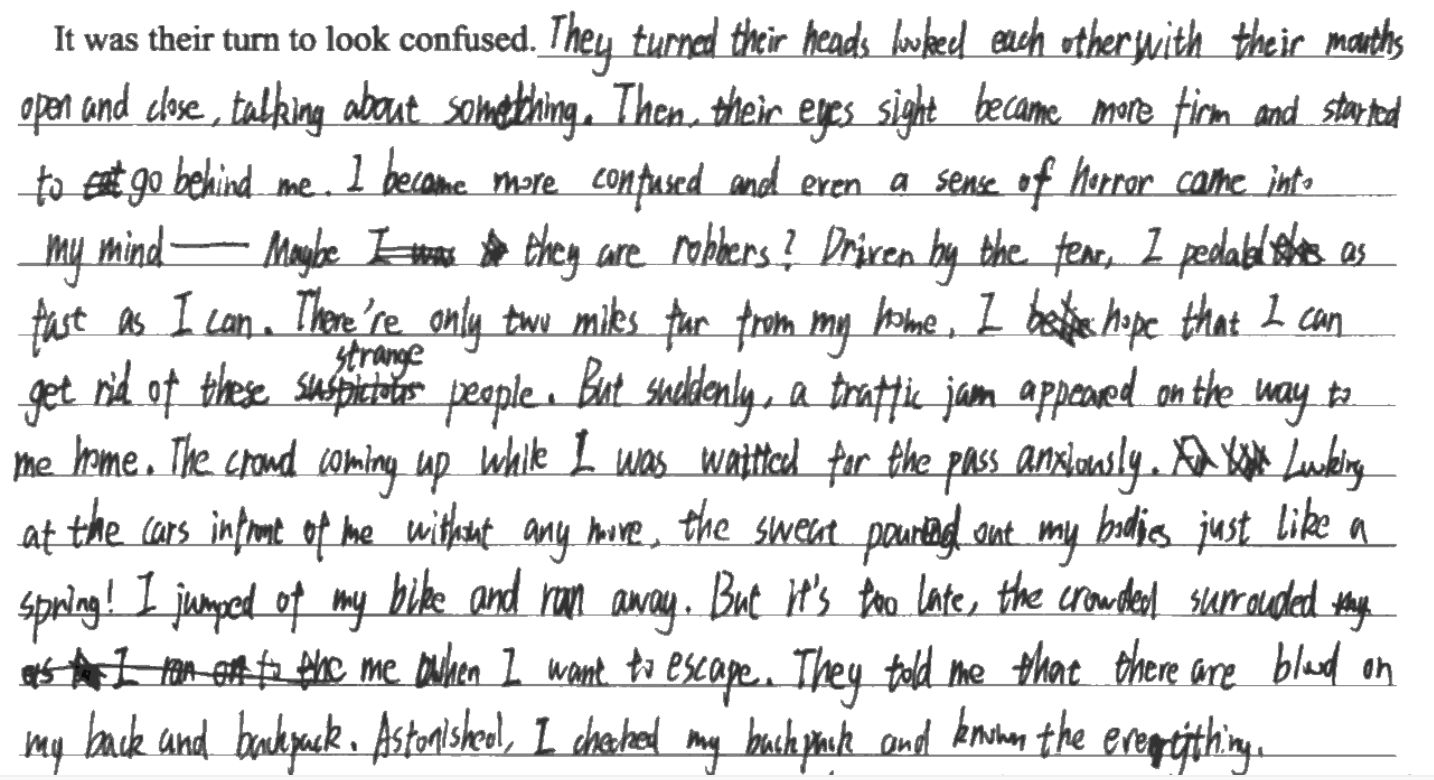 It was their turn to look confused. They turned their heads looked each other with their mouths
open and close, talking about something. Then, their eyes sight became more firm and started
to go behind me. I became more confused and even a sense of horror came into
my mind —— Maybe they are robbers? Driven by the fear, I pedald as
fast as I can. There're only two miles far from my home, I hope that I can
get rid of these strange people. But suddenly, a traffic jam appeared on the way to
me home. The crowd coming up while I was waitted for the pass anxiously. Looking
at the cars infront of me without any move, the sweat pourad out my bodies just like a
spring! I jumped of my bike and ran away. But it's too late, the crowded surrouded
me when I want to escape. They told me that there are blood on
my back and backpack. Astonished, I checked my backpack and known the everything.